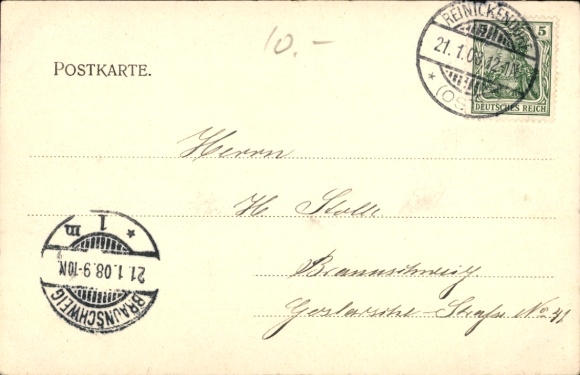 10.-
POSTKARTE.
REINICKENDORF
21.1.08.12-1N.
* (OST)
5
DEUTSCHES REICH
Herrn
H Stolle
Braunschweig
Goslarsche-Straße No. 41
* 1 m
21.1.08.9-10N.
BRAUNSCHWEIG